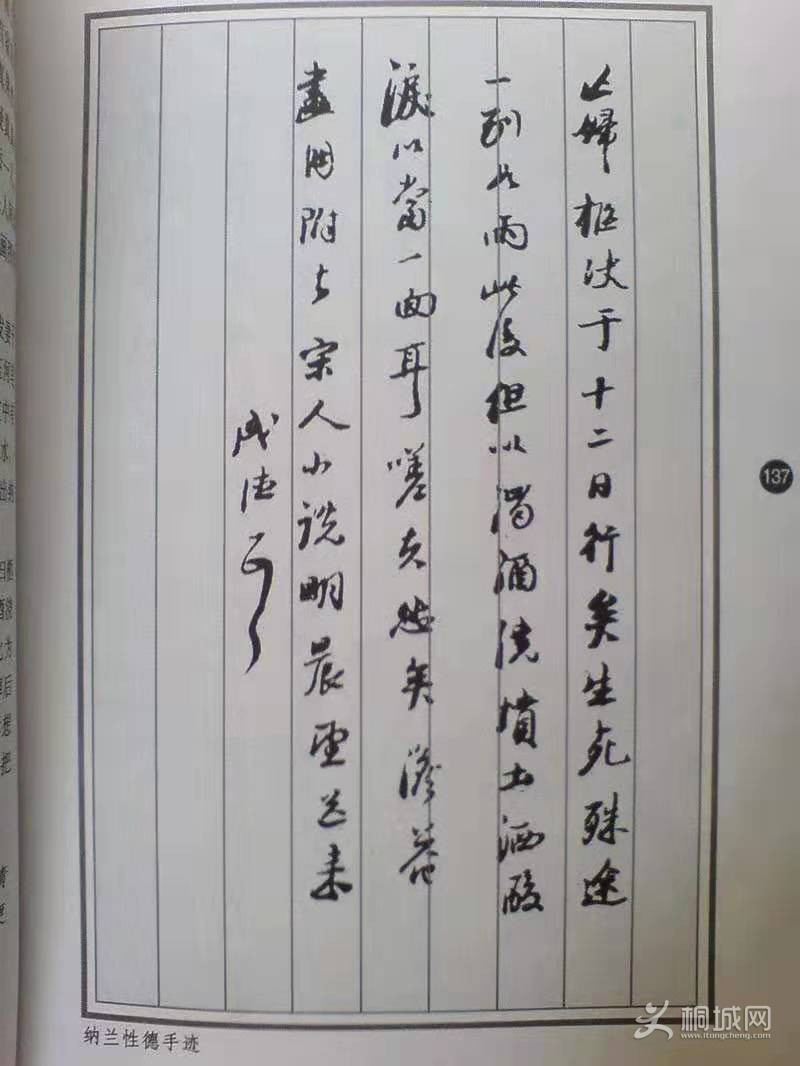 亡婦柩决于十二日行矣生死殊途
一别如雨此後但以濁酒澆墳土洒酸
淚以當一面耳嗟夫悲矣澹菴
畫册附去宋人小説明晨望送来
成德
137
纳兰性德手迹
桐城网
www.itongcheng.com